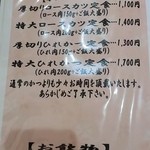 厚切りロースカツ定食…1,100円
(ロース肉150g・ご飯大盛り)
特大ロースカツ定食…1,600円
(ロース肉250g・ご飯大盛り)
厚切りひれかつ定食…1,300円
(ひれ肉150g・ご飯大盛り)
特大ひれかつ定食…1,700円
(ひれ肉200g・ご飯大盛り)
通常のかつよりも少々お時間を頂戴いたします。
あらかじめご了承下さい。